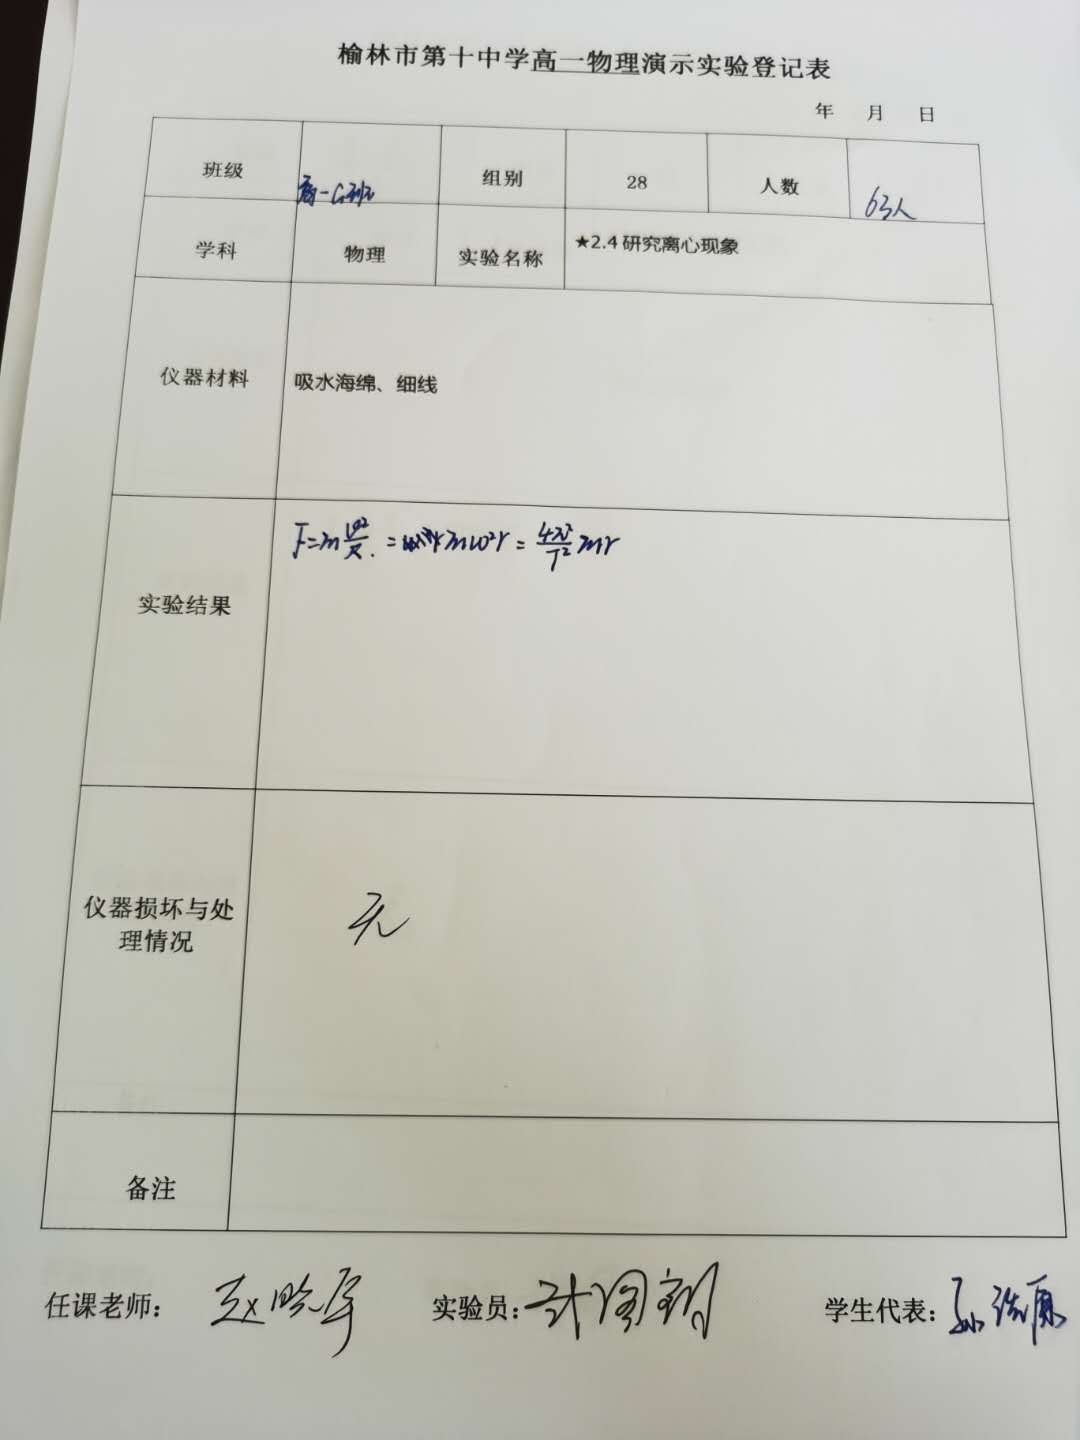 榆林市第十中学高一物理演示实验登记表
年 月 日
班级 高一 班 组别 28 人数 63人
学科 物理 实验名称 ★2.4研究离心现象
仪器材料 吸水海绵、细线
实验结果 F=m v²/R. = mω²r = 4π²/T² mr
仪器损坏与处
理情况 无
备注
任课老师: 赵晓宇 实验员: 学生代表: 孙浩原